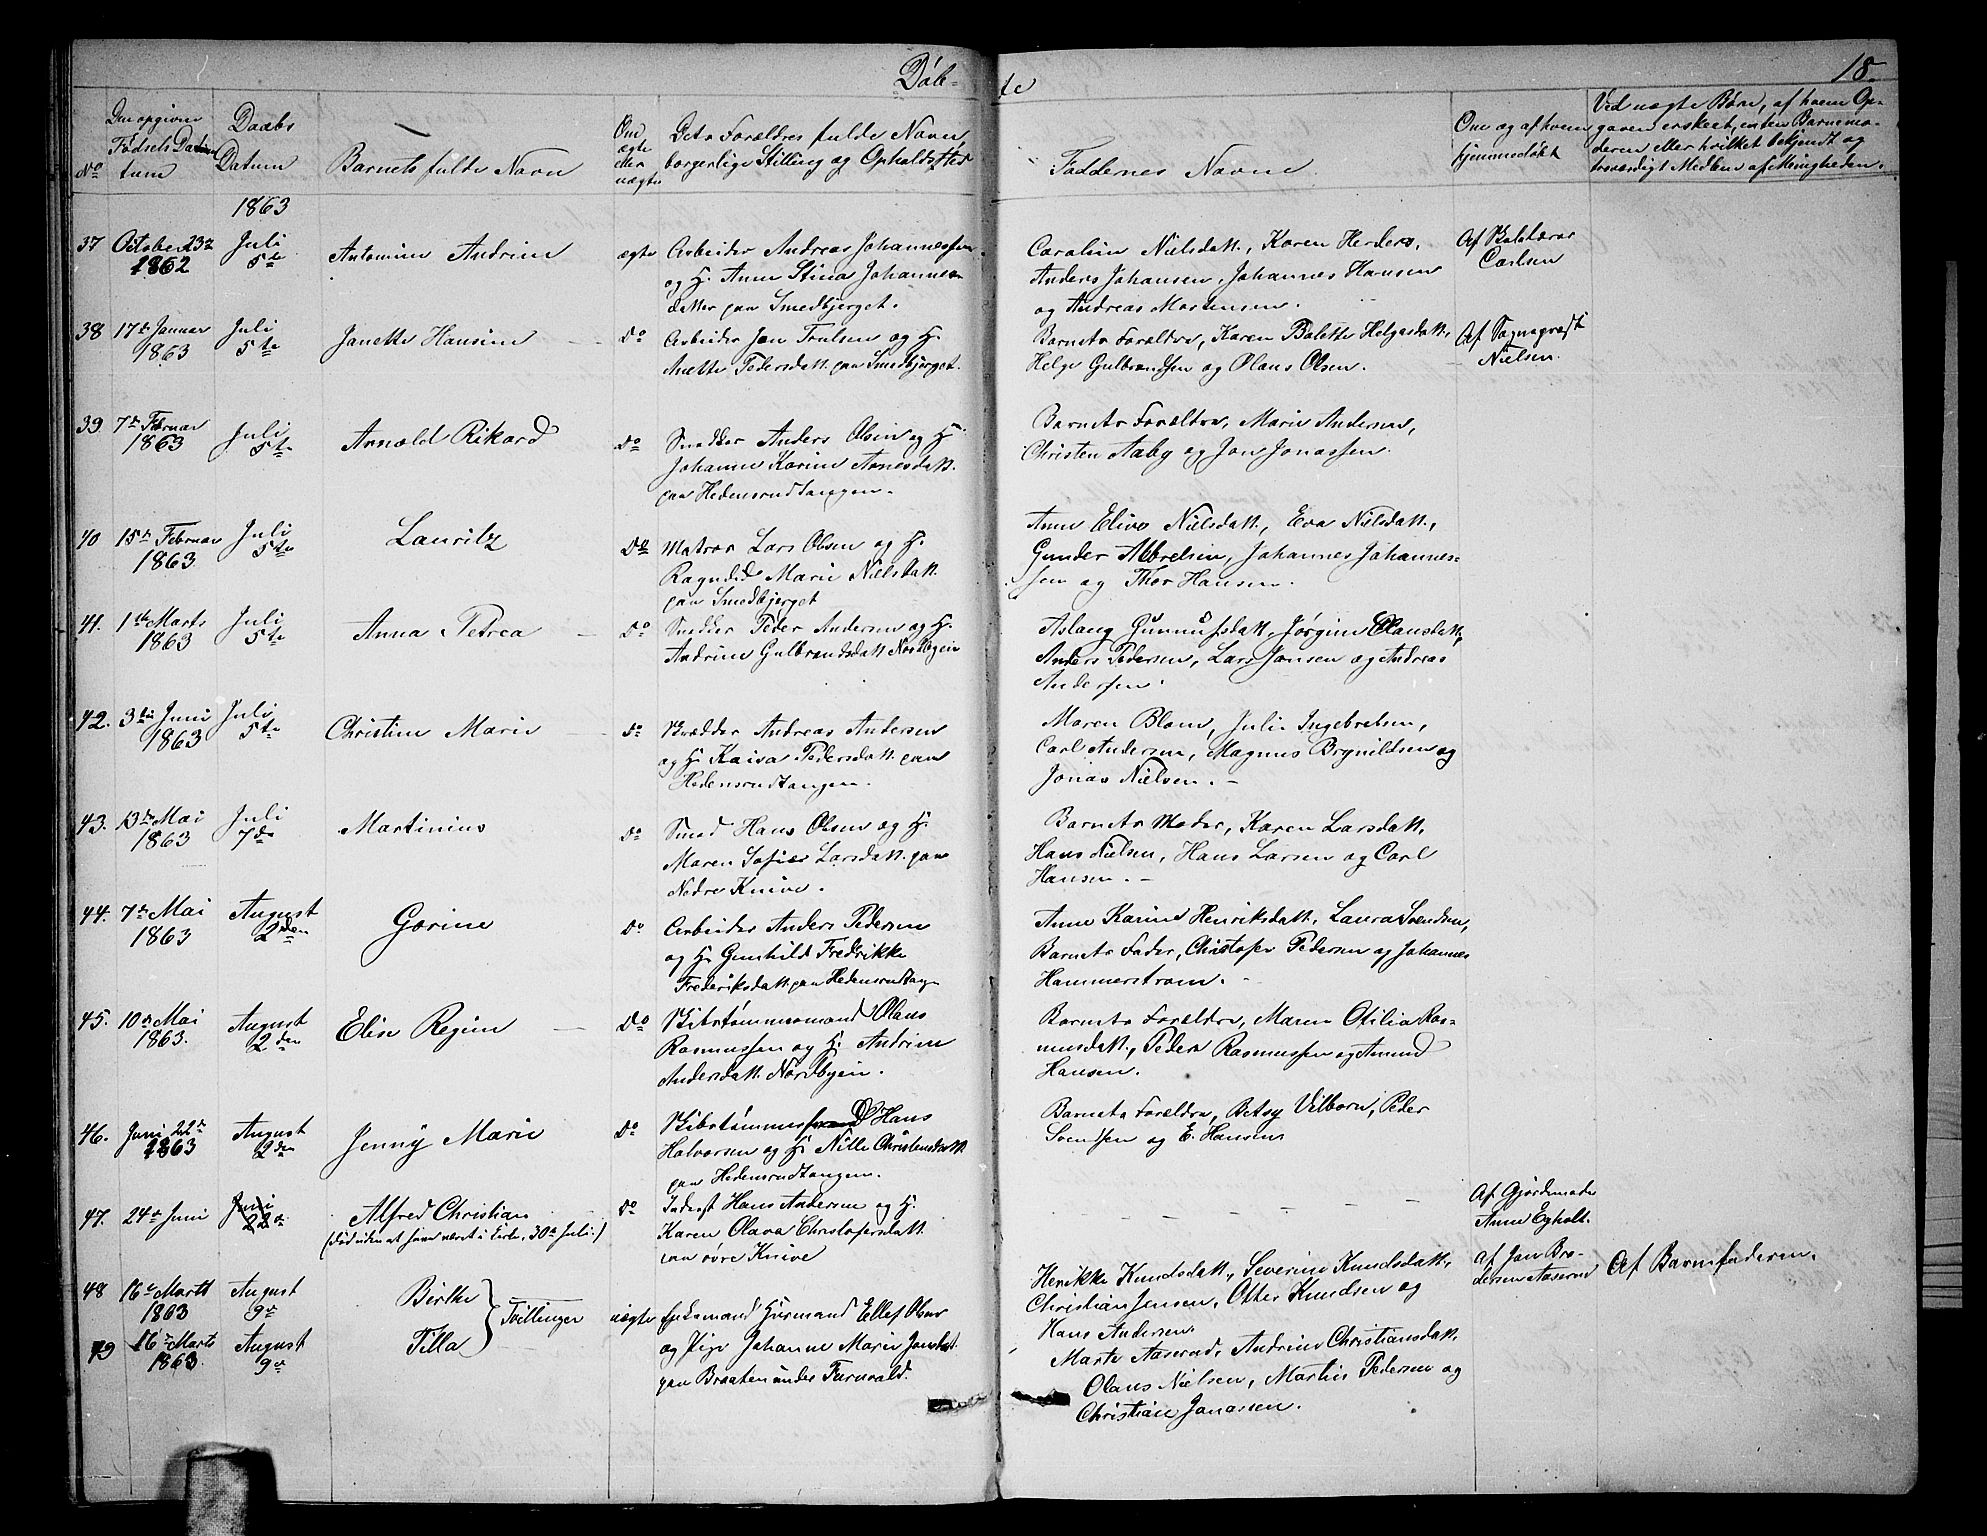 Döb-
te
18
No
Den opgivne
Fødsels Da-
tum
Daabs
Datum
Barnets fulde Navn
Om
ægte
eller
uægte
Dets Forældres fulde Navn
borgerlige Stilling og Opholdssted
Faddernes Navne
Om og af hvem
hjemmedøbt
Ved uægte Børn, af hvem Op-
gaven er skeet, enten Barnemo-
deren eller hvilket bekjendt og
troværdigt Medlem af Menigheden.
1863
37 October 23de Juli Antomine Andrine ægte Arbeider Andreas Johannessen Caroline Nielsdatt., Karen Herders, Af
1862 5te og H. Anne Stina Johannes- Anders Johansen, Johannes Hansen Carlsen
datter paa Smedbjerget. og Andreas Mortensen.
38 17de Januar Juli Janette Hansine Do Arbeider Jon Trulsen og H. Barnets Forældre, Karen Bolette Helgesdatt., Af Sognepræst
1863 5te Mette Pedersdatt. paa Smedbjerget. Helge Gulbrandsen og Olaus Olsen. Nielsen.
39. 7de Februar Juli Arnold Rikard Do Snedker Anders Olsen og H. Barnets Forældre, Marie Andersen,
1863 5te Johanne Karine Arnesdatt. Christen Aaby og Jon Jonassen.
paa Hedensrudtangen.
40 15de Februar Juli Lauritz Do Matros Lars Olsen og H. Anne Elise Nielsdatt., Eva Nielsdatt.,
1863 5te Ragnild Marie Nielsdatt. Gunder Albretsen, Johannes Johannes-
paa Smedbjerget sen og Thor Hansen.
41. 1ste Marts Juli Anna Petrea Do Snedker Peder Andersen og H. Aslaug Gunnufsdatt., Jørgine Olausdatt.,
1863 5te Andrine Gulbrandsdatt. Nordbyen Anders Pedersen, Lars Jansen og Andreas
Andersen.
42. 3die Juni Juli Christine Marie Do Skrædder Andreas Andersen Maren Blom, Julie Ingebretsen,
1863 5te og H. Kaisa Pedersdatt. paa Carl Andersen, Magnus Brynildsen og
Hedensrudtangen. Jonas Nielsen.
43. 13de Mai Juli Martinius Do Smed Hans Olsen og H. Barnets Moder, Karen Larsdatt.
1863 7de Maren Sofie Larsdatt. paa Hans Nielsen, Hans Larsen og Carl
Nedre Knive. Hansen.
44. 7de Mai August Gorine Do Arbeider Anders Pedersen Anne Karine Henriksdatt., Laura Svendsen,
1863 2den og H. Gunhild Fredrikke Barnets Fader, Christofer Pedersen og Johannes
Frederiksdatt. paa Hedensrudtang. Hammerstrøm.
45. 10de Mai August Elise Regine Do Skibstømmermand Olaus Barnets Forældre, Maren Otilia Ras-
1863. 2den Rasmussen og H. Andrine musdatt., Peder Rasmussen og Amund
Andersdatt. Nordbyen. Hansen.
46. Juni 22de August Jenny Marie Do Skibstømmermand Hans Barnets Forældre, Betsy Vilborn, Peder
1863 2den Halvorsen og H. Nille Christensdatt. Svendsen og E. Hansen
paa Hedensrudtangen.
47. 24de Juni Juni Alfred Christian Do Inderst Hans Andersen og H. Af Gjordemoder
22de (død uden at have været i Kirke, 30te Juli.) Karen Olava Christofersdatt. Anne Egholt.
paa øvre Knive
48 16de Marts August Birthe Tvillinger uægte Enkemand Huusmand Ellef Olsen Henrikke Knudsdatt., Severine Knudsdatt., Af Jan Bre- Af Barnefaderen.
1863 9de Christian Jensen, Otter Knudsen og dersen Aaserud
Hans Andersen
49 16de Marts August Tilla og Pige Johanne Marie Jansdat. Marte Aaserud, Andrine Christiansdatt.
1863. 9de paa Braaten under Furuvald. Olaus Nielsen, Martin Pedersen og
Christian Jonassen.